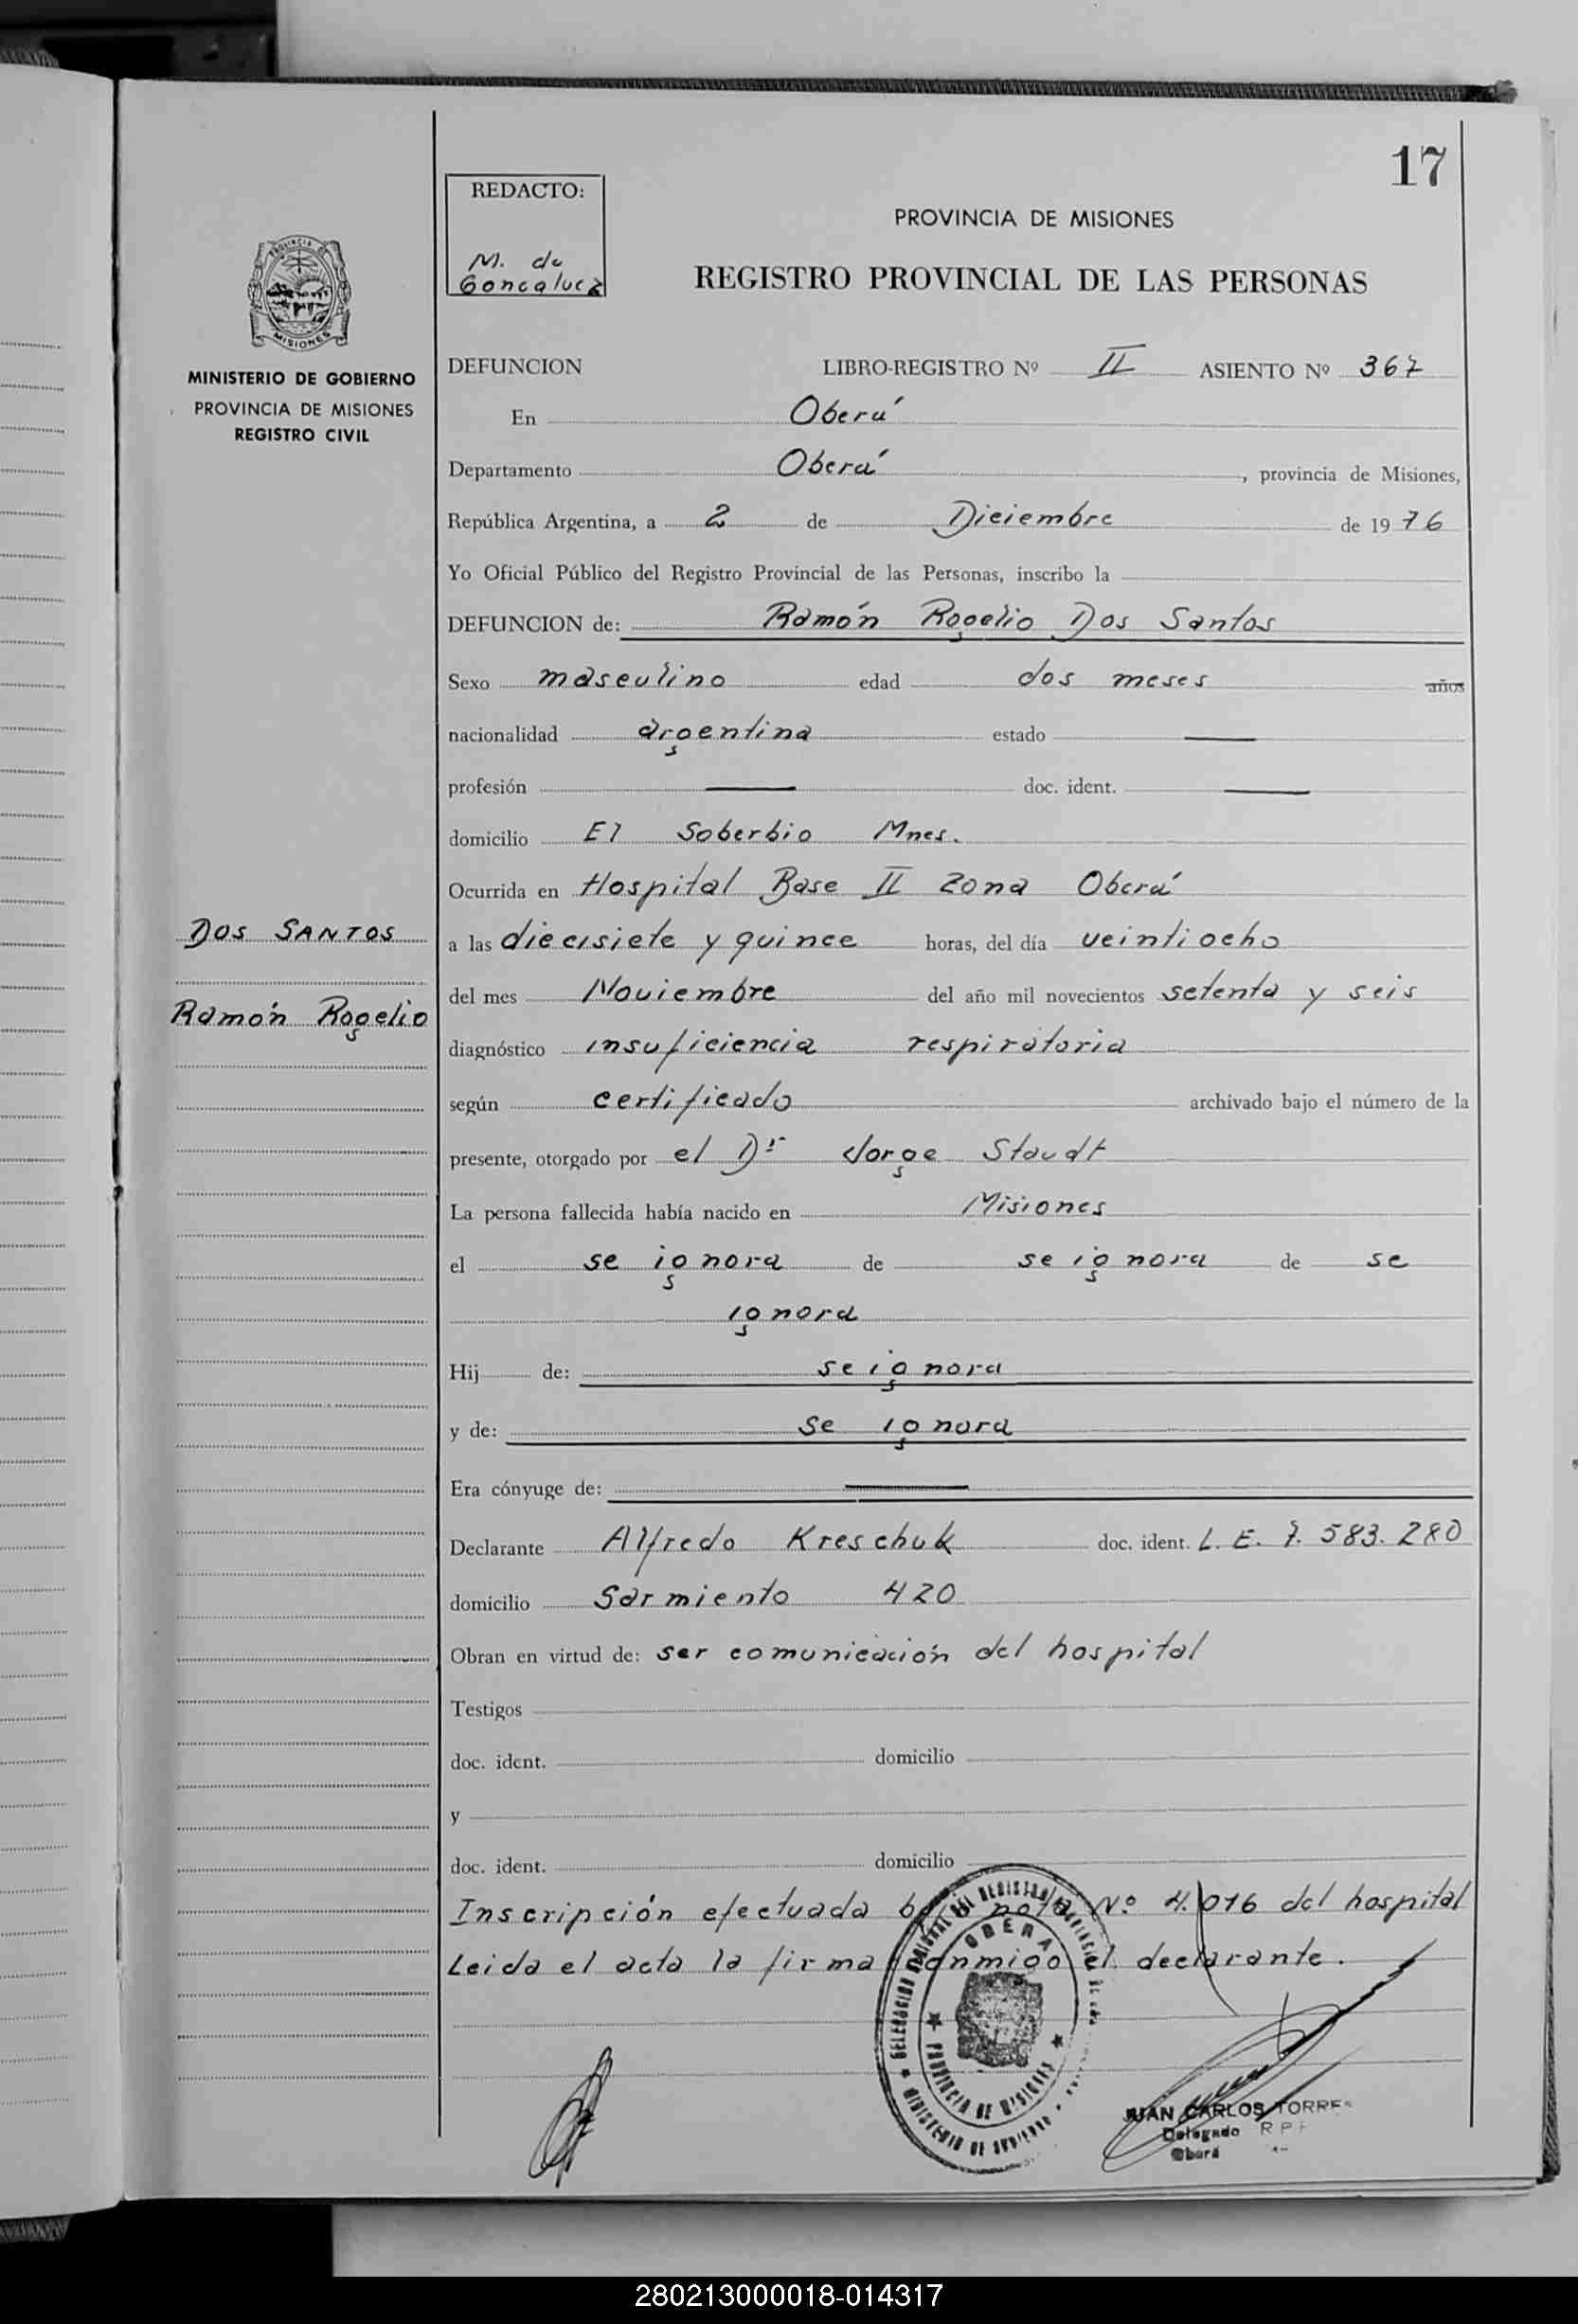 17
REDACTO:
M. de
Goncalvez
PROVINCIA DE MISIONES
REGISTRO PROVINCIAL DE LAS PERSONAS
PROVINCIA DE
MISIONES
MINISTERIO DE GOBIERNO
PROVINCIA DE MISIONES
REGISTRO CIVIL
DEFUNCION LIBRO-REGISTRO Nº II ASIENTO Nº 367
En Oberá
Departamento Oberá, provincia de Misiones,
República Argentina, a 2 de Diciembre de 1976
Yo Oficial Público del Registro Provincial de las Personas, inscribo la
DEFUNCION de: Ramón Rogelio Dos Santos
Sexo masculino edad dos meses años
nacionalidad argentina estado —
profesión — doc. ident. —
domicilio El Soberbio Mnes.
Ocurrida en Hospital Base II Zona Oberá
a las diecisiete y quince horas, del día veintiocho
del mes Noviembre del año mil novecientos setenta y seis
diagnóstico insuficiencia respiratoria
según certificado archivado bajo el número de la
presente, otorgado por el Dr Jorge Staudt
La persona fallecida había nacido en Misiones
el se ignora de se ignora de se
ignora
Hij de: se ignora
y de: se ignora
Era cónyuge de: —
Declarante Alfredo Kreschuk doc. ident. L. E. 7.583.280
domicilio Sarmiento 420
Obran en virtud de: ser comunicación del hospital
Testigos
doc. ident. domicilio
y
doc. ident. domicilio
Inscripción efectuada bajo nota Nº 4.016 del hospital
Leida el acta la firma conmigo el declarante.
DOS SANTOS
Ramón Rogelio
OBERA
PROVINCIA DE MISIONES
JUAN CARLOS TORRES
Delegado R P P
Oberá
280213000018-014317